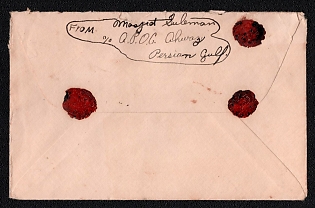 From Masjid Suleman
c/o A.P.O.C. Ahwaz
Persian Gulf